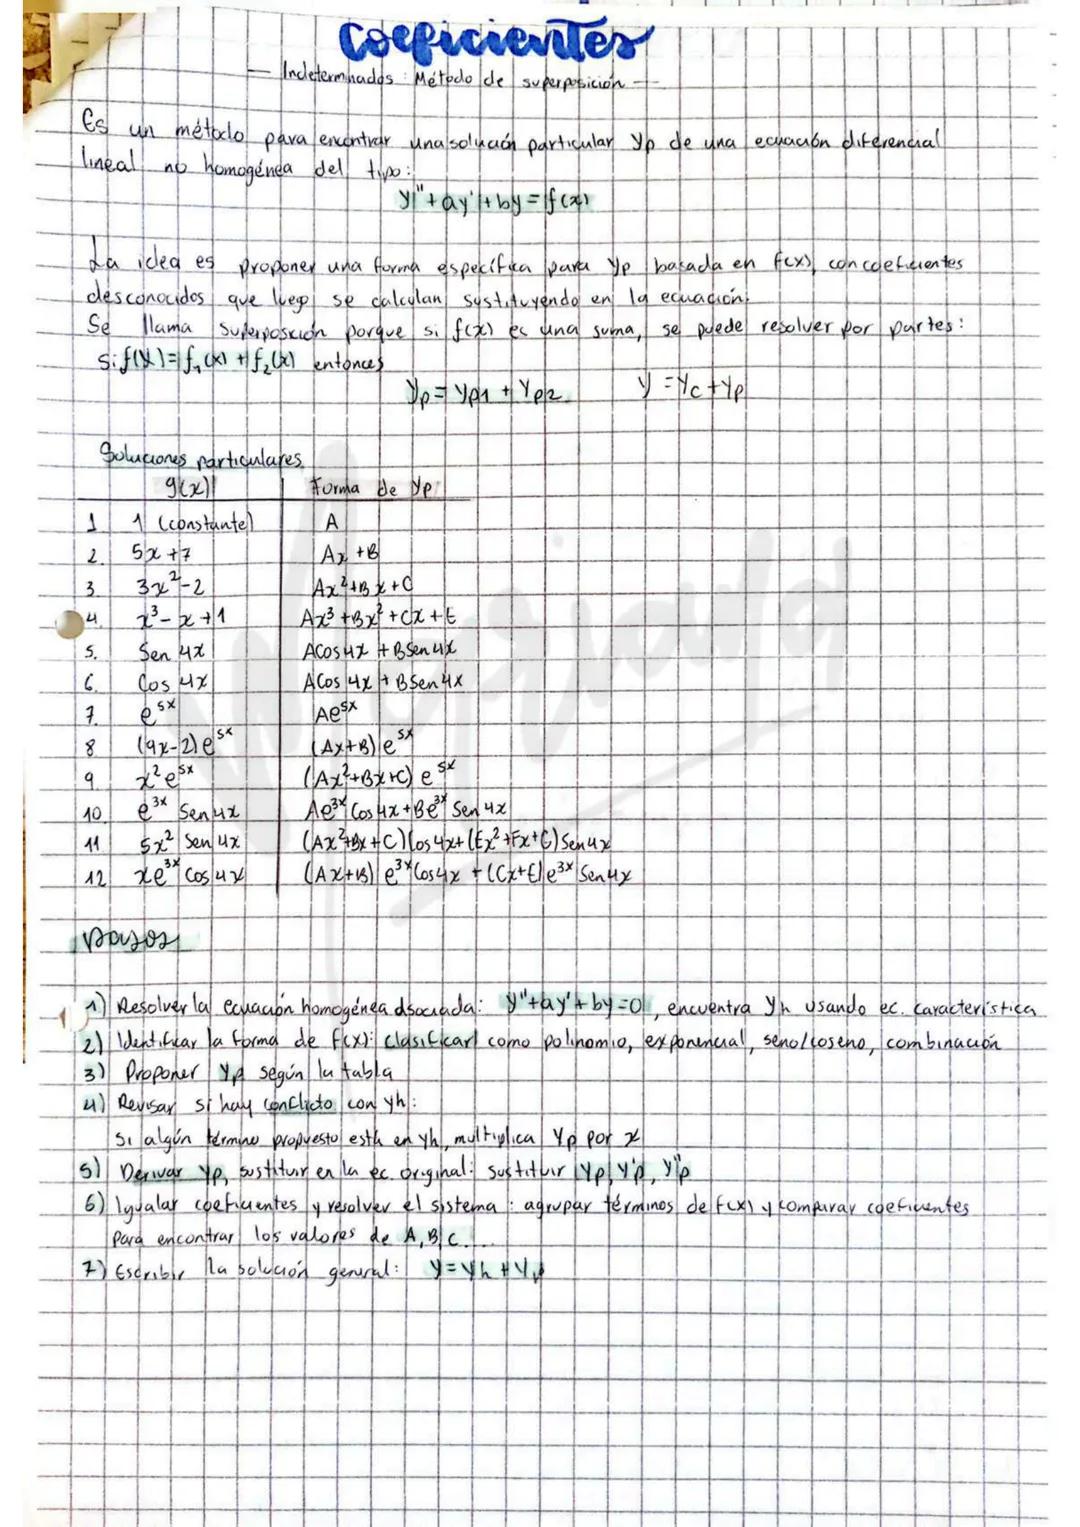 Coeficientes
— Indeterminados: Método de superposición —
Es un método para encontrar una solución particular yp de una ecuación diferencial
lineal no homogénea del tipo:
y'' + ay' + by = f(x)
La idea es proponer una forma específica para yp basada en f(x), con coeficientes
desconocidos que luego se calculan sustituyendo en la ecuación.
Se llama superposición porque si f(x) es una suma, se puede resolver por partes:
Si f(x) = f₁(x) + f₂(x) entonces
yp = yp1 + yp2 y = yc + yp
Soluciones particulares
g(x) Forma de yp
1 1 (constante) A
2. 5x+7 Ax+B
3. 3x²-2 Ax²+Bx+C
4. x³-x+1 Ax³+Bx²+Cx+E
5. Sen 4x ACos4x + BSen4x
6. Cos 4x ACos 4x + BSen4x
7. e⁵ˣ Ae⁵ˣ
8 (9x-2)e⁵ˣ (Ax+B)e⁵ˣ
9. x²e⁵ˣ (Ax²+Bx+C) e⁵ˣ
10. e³ˣ Sen4x Ae³ˣ Cos4x + Be³ˣ Sen 4x
11 5x² Sen 4x (Ax²+Bx+C)Cos4x+(Ex²+Fx+G)Sen4x
12 xe³ˣ Cos4x (Ax+B) e³ˣ Cos4x + (Cx+E)e³ˣ Sen4x
Mariana
Pasos
1) Resolver la ecuación homogénea asociada: y''+ay'+by=0, encuentra yh usando ec. característica
2) Identificar la forma de f(x): clasificar como polinomio, exponencial, seno/coseno, combinación
3) Proponer yp según la tabla
4) Revisar si hay conflicto con yh:
Si algún término propuesto está en yh, multiplica yp por x
5) Derivar yp, sustituir en la ec. original: sustituir yp, y'p, y''p
6) Igualar coeficientes y resolver el sistema: agrupar términos de f(x) y comparar coeficientes
para encontrar los valores de A, B, C....
7) Escribir la solución general: y = yh + yp